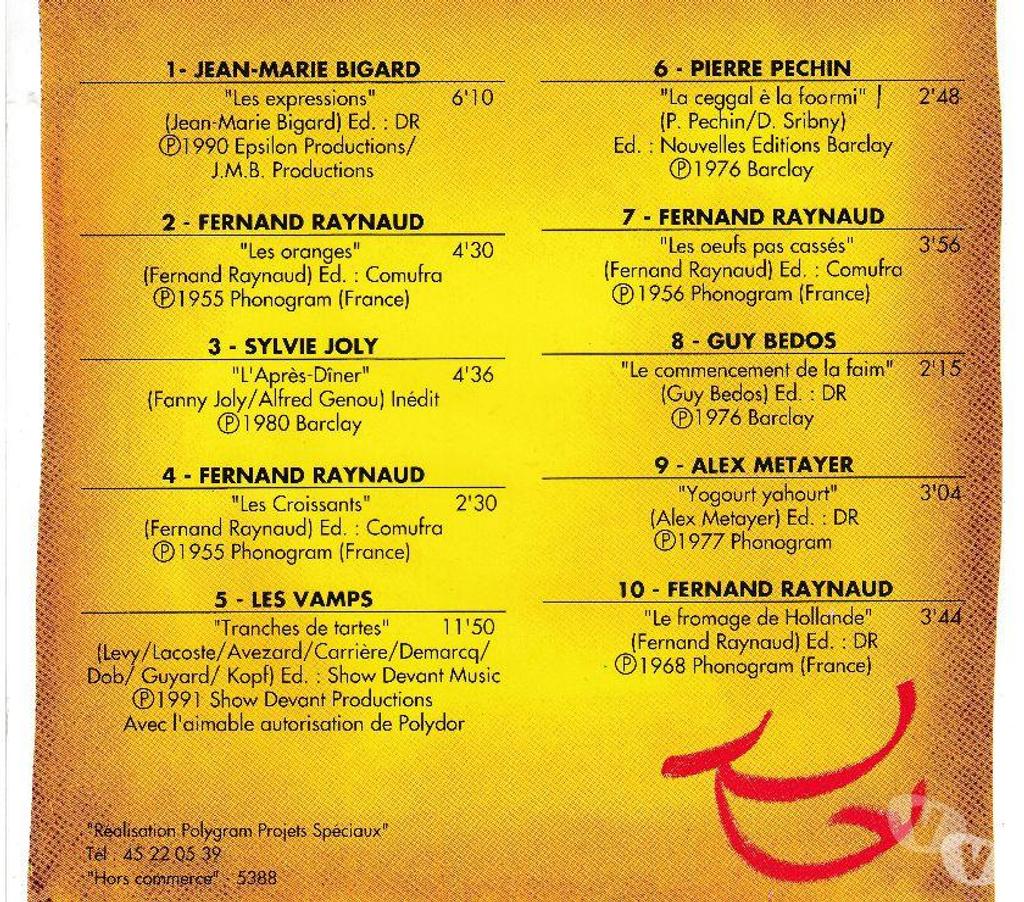 1- JEAN-MARIE BIGARD
"Les expressions" 6'10
(Jean-Marie Bigard) Ed. : DR
Ⓟ1990 Epsilon Productions/
J.M.B. Productions
2 - FERNAND RAYNAUD
"Les oranges" 4'30
(Fernand Raynaud) Ed. : Comufra
Ⓟ1955 Phonogram (France)
3 - SYLVIE JOLY
"L'Après-Dîner" 4'36
(Fanny Joly/Alfred Genou) Inédit
Ⓟ1980 Barclay
4 - FERNAND RAYNAUD
"Les Croissants" 2'30
(Fernand Raynaud) Ed. : Comufra
Ⓟ1955 Phonogram (France)
5 - LES VAMPS
"Tranches de tartes" 11'50
(Levy/Lacoste/Avezard/Carrière/Demarcq/
Dob/ Guyard/ Kopf) Ed. : Show Devant Music
Ⓟ1991 Show Devant Productions
Avec l'aimable autorisation de Polydor
6 - PIERRE PECHIN
"La ceggal è la foormi" 2'48
(P. Pechin/D. Sribny)
Ed. : Nouvelles Editions Barclay
Ⓟ1976 Barclay
7 - FERNAND RAYNAUD
"Les oeufs pas cassés" 3'56
(Fernand Raynaud) Ed. : Comufra
Ⓟ1956 Phonogram (France)
8 - GUY BEDOS
"Le commencement de la faim" 2'15
(Guy Bedos) Ed. : DR
Ⓟ1976 Barclay
9 - ALEX METAYER
"Yogourt yahourt" 3'04
(Alex Metayer) Ed. : DR
Ⓟ1977 Phonogram
10 - FERNAND RAYNAUD
"Le fromage de Hollande" 3'44
(Fernand Raynaud) Ed. : DR
Ⓟ1968 Phonogram (France)
"Réalisation Polygram Projets Spéciaux"
Tél : 45 22 05 39
"Hors commerce" - 5388